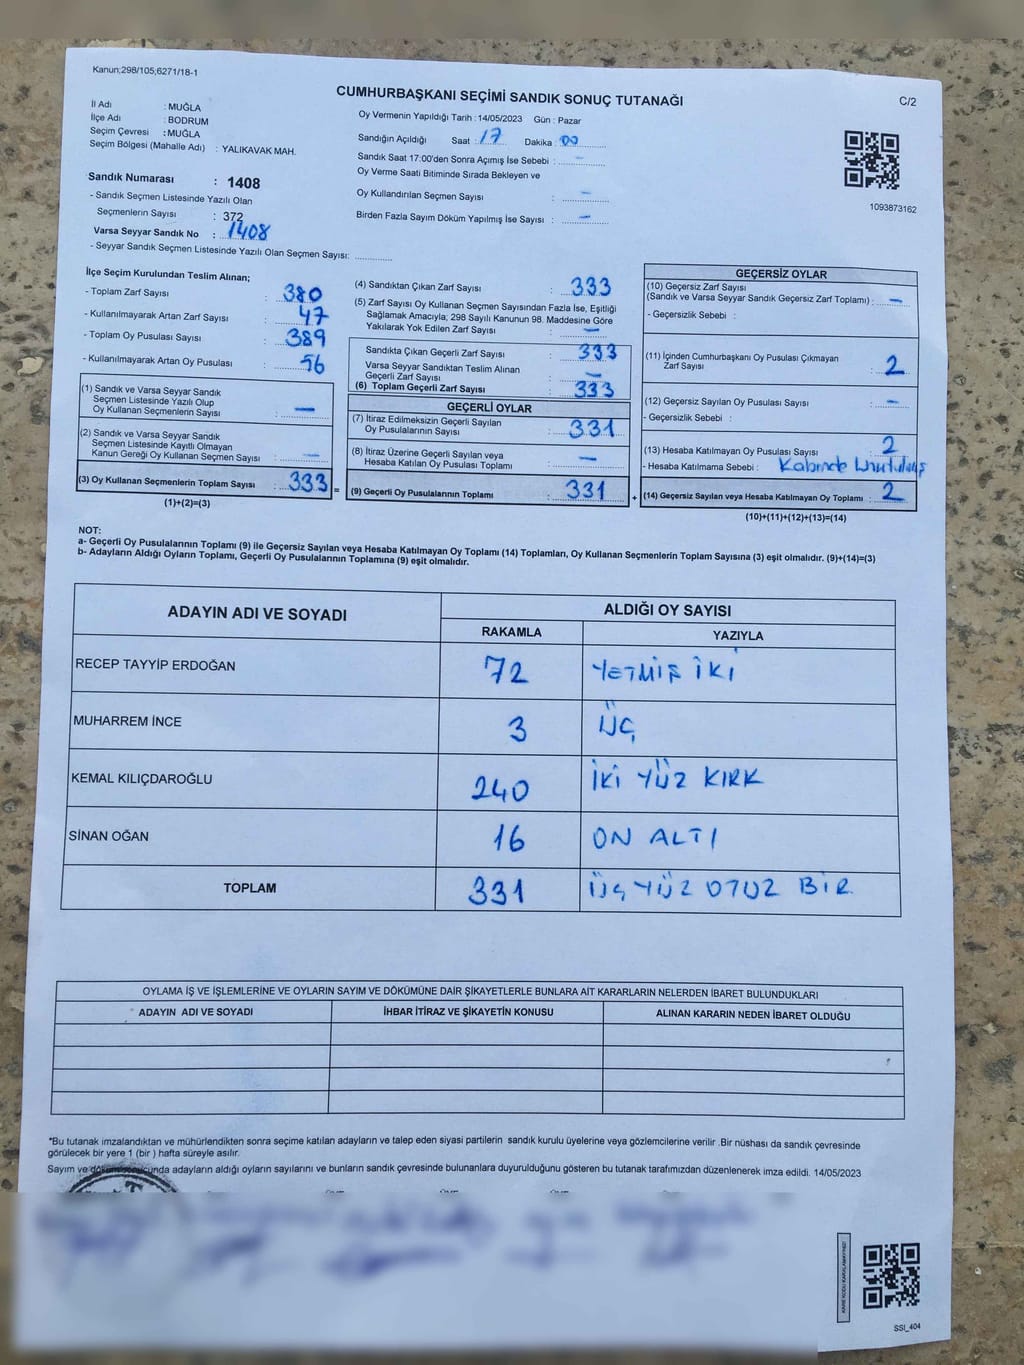 Kanun:298/105;6271/18-1
CUMHURBAŞKANI SEÇİMİ SANDIK SONUÇ TUTANAĞI
C/2
İl Adı : MUĞLA
İlçe Adı : BODRUM
Seçim Çevresi : MUĞLA
Seçim Bölgesi (Mahalle Adı) : YALIKAVAK MAH.
Sandık Numarası : 1408
- Sandık Seçmen Listesinde Yazılı Olan
Seçmenlerin Sayısı : 372
Varsa Seyyar Sandık No : 1408
- Seyyar Sandık Seçmen Listesinde Yazılı Olan Seçmen Sayısı: ............
Oy Vermenin Yapıldığı Tarih : 14/05/2023 Gün : Pazar
Sandığın Açıldığı Saat : 17 Dakika : 00
Sandık Saat 17:00'den Sonra Açımış İse Sebebi : -
Oy Verme Saati Bitiminde Sırada Bekleyen ve
Oy Kullandırılan Seçmen Sayısı : -
Birden Fazla Sayım Döküm Yapılmış İse Sayısı : -
1093873162
İlçe Seçim Kurulundan Teslim Alınan;
- Toplam Zarf Sayısı : 380
- Kullanılmayarak Artan Zarf Sayısı : 47
- Toplam Oy Pusulası Sayısı : 389
- Kullanılmayarak Artan Oy Pusulası : 56
(1) Sandık ve Varsa Seyyar Sandık
Seçmen Listesinde Yazılı Olup
Oy Kullanan Seçmenlerin Sayısı : -
(2) Sandık ve Varsa Seyyar Sandık
Seçmen Listesinde Kayıtlı Olmayan
Kanun Gereği Oy Kullanan Seçmen Sayısı : -
(3) Oy Kullanan Seçmenlerin Toplam Sayısı : 333 =
(1)+(2)=(3)
(4) Sandıktan Çıkan Zarf Sayısı : 333
(5) Zarf Sayısı Oy Kullanan Seçmen Sayısından Fazla İse, Eşitliği
Sağlamak Amacıyla; 298 Sayılı Kanunun 98. Maddesine Göre
Yakılarak Yok Edilen Zarf Sayısı : -
Sandıkta Çıkan Geçerli Zarf Sayısı : 333
Varsa Seyyar Sandıktan Teslim Alınan
Geçerli Zarf Sayısı : -
(6) Toplam Geçerli Zarf Sayısı : 333
GEÇERLİ OYLAR
(7) İtiraz Edilmeksizin Geçerli Sayılan
Oy Pusulalarının Sayısı : 331
(8) İtiraz Üzerine Geçerli Sayılan veya
Hesaba Katılan Oy Pusulası Toplamı : -
(9) Geçerli Oy Pusulalarının Toplamı : 331 +
GEÇERSİZ OYLAR
(10) Geçersiz Zarf Sayısı
(Sandık ve Varsa Seyyar Sandık Geçersiz Zarf Toplamı) : -
- Geçersizlik Sebebi :
(11) İçinden Cumhurbaşkanı Oy Pusulası Çıkmayan
Zarf Sayısı : 2
(12) Geçersiz Sayılan Oy Pusulası Sayısı : -
- Geçersizlik Sebebi :
(13) Hesaba Katılmayan Oy Pusulası Sayısı : 2
- Hesaba Katılmama Sebebi : Kabinde Unutulmuş
(14) Geçersiz Sayılan veya Hesaba Katılmayan Oy Toplamı : 2
(10)+(11)+(12)+(13)=(14)
NOT:
a- Geçerli Oy Pusulalarının Toplamı (9) ile Geçersiz Sayılan veya Hesaba Katılmayan Oy Toplamı (14) Toplamları, Oy Kullanan Seçmenlerin Toplam Sayısına (3) eşit olmalıdır. (9)+(14)=(3)
b- Adayların Aldığı Oyların Toplamı, Geçerli Oy Pusulalarının Toplamına (9) eşit olmalıdır.
ADAYIN ADI VE SOYADI ALDIĞI OY SAYISI
RAKAMLA YAZIYLA
RECEP TAYYİP ERDOĞAN 72 YETMİŞ İKİ
MUHARREM İNCE 3 ÜÇ
KEMAL KILIÇDAROĞLU 240 İKİ YÜZ KIRK
SİNAN OĞAN 16 ON ALTI
TOPLAM 331 ÜÇ YÜZ OTUZ BİR
OYLAMA İŞ VE İŞLEMLERİNE VE OYLARIN SAYIM VE DÖKÜMÜNE DAİR ŞİKAYETLERLE BUNLARA AİT KARARLARIN NELERDEN İBARET BULUNDUKLARI
ADAYIN ADI VE SOYADI İHBAR İTİRAZ VE ŞİKAYETİN KONUSU ALINAN KARARIN NEDEN İBARET OLDUĞU
*Bu tutanak imzalandıktan ve mühürlendikten sonra seçime katılan adayların ve talep eden siyasi partilerin sandık kurulu üyelerine veya gözlemcilerine verilir .Bir nüshası da sandık çevresinde
görülecek bir yere 1 (bir ) hafta süreyle asılır.
Sayım ve döküm sonucunda adayların aldığı oyların sayılarını ve bunların sandık çevresinde bulunanlara duyurulduğunu gösteren bu tutanak tarafımızdan düzenlenerek imza edildi. 14/05/2023
SSI_404